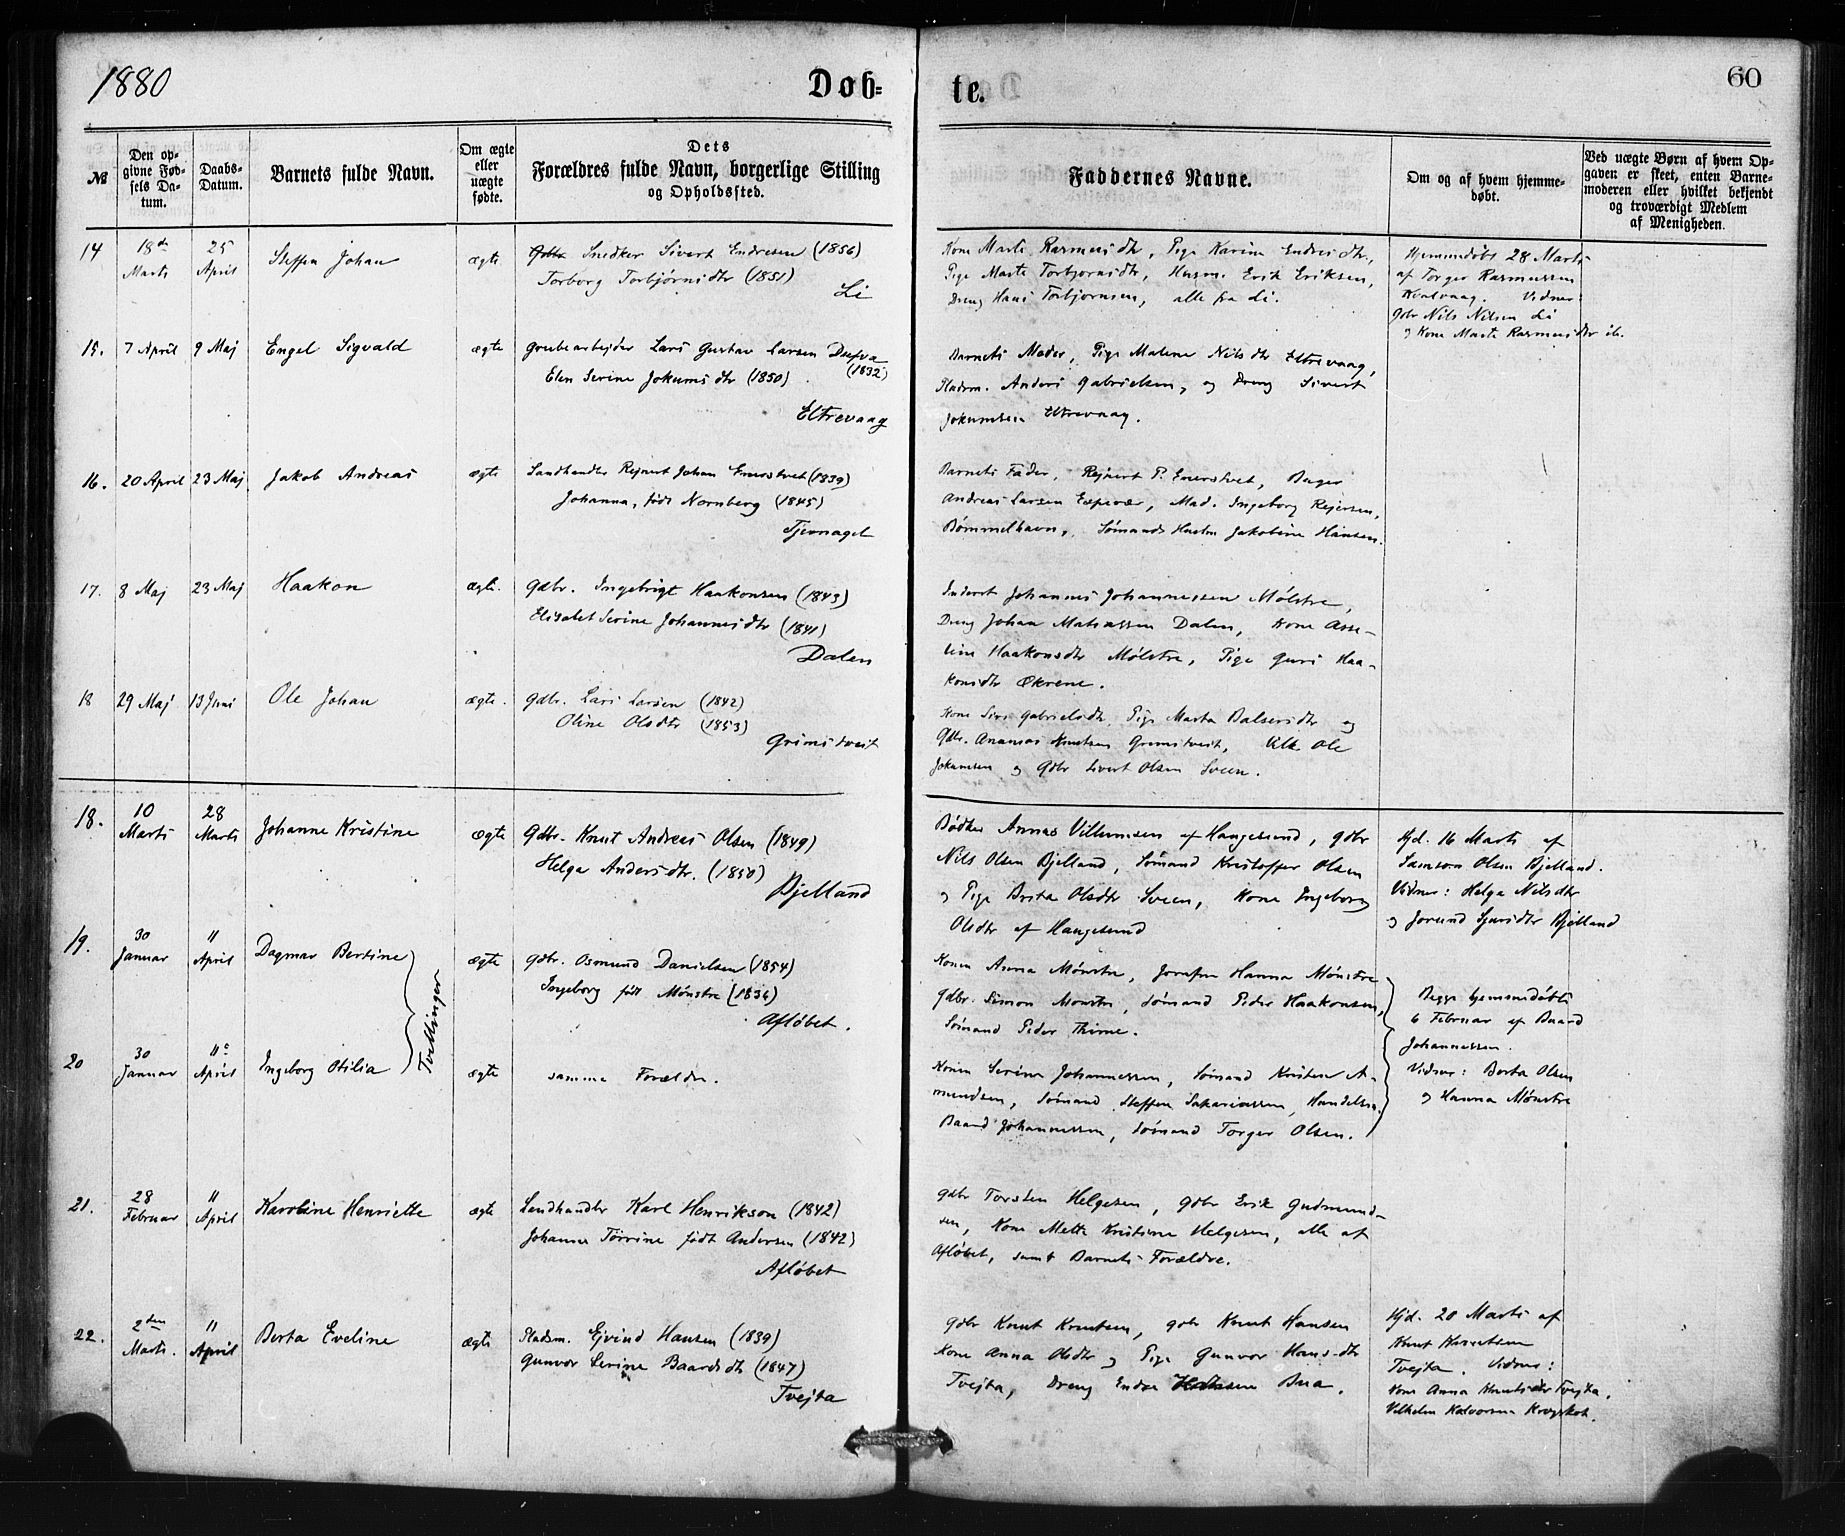 1880
Døb-
te.
60
№
Den opgivne Fødsels Datum.
Daabs-Datum.
Barnets fulde Navn.
Om ægte eller uægte fødte.
Dets Forældres fulde Navn, borgerlige Stilling og Opholdssted.
Faddernes Navne.
Om og af hvem hjemmedøbt.
Ved uægte Børn af hvem Opgaven er skeet, enten Barnemoderen eller hvilket bekjendt og troværdigt Medlem af Menigheden.
14 18de Marts 25 April Steffen Johan ægte Snedker Sivert Endresen (1856)
Torborg Torbjørnsdtr (1851)
Li
Kone Marte Rasmusdtr, Pige Karine Endresdtr,
Pige Marte Torbjornsdtr, Husm. Erik Eriksen,
Dreng Hans Torbjornsen, alle fra Li.
Hjemmedøbt 28 Marts
af Torger Rasmussen
Kvalvaag. Vidner:
Gbr Nils Nilsen Li
og Kone Marte Rasmusdtr ib.
15. 7 April 9 Maj Engel Sigvald ægte Grubearbejder Lars Gustav Larsen
(1832)
Elen Serine Jokumsdtr (1850)
Eltrevaag
Barnets Moder, Pige Malene Nilsdtr Eltrevaag,
Pladsm. Anders Gabrielsen, og Dreng Sivert
Jokumsen Eltrevaag.
16. 20 April 23 Maj Jakob Andreas ægte Landhandler Rejnert Johan Enerstvet (1839)
Johanna, født Nornberg (1845)
Tjernagel
Barnets Fader, Rejnert P. Enerstvet,
Andreas Larsen Espevær, Mad. Ingeborg Rejersen,
Bømmelhavn, Sømands Hustru Jakobine Hansen.
17. 8 Maj 23 Maj Haakon ægte. Gbr. Ingebrigt Haakonsen (1843)
Elisabet Serine Johannesdtr (1841)
Dalen
Inderst Johannes Johannessen Mølstre,
Dreng Johan Matiassen Dalen, Kone Asse-
line Haakonsdtr Mølstre, Pige Guri Haa-
konsdtr Økrene.
18 29 Maj 13 Juni Ole Johan ægte. Gbr. Lars Larsen (1842)
Oline Olsdtr (1853)
Grimstveit
Kone Siri Gabrielsdtr, Pige Marta Balsersdtr og
Gbr. Ananias Knutsen Grimstveit, Ole
Jokumsen og Gbr Sivert Olsen Sveen.
18. 10 Marts 28 Marts Johanne Kristine ægte Gbr. Knut Andreas Olsen (1849)
Helga Andersdtr. (1850)
Bjelland
Bødker Annas Villumsen af Haugesund, Gbr
Nils Olsen Bjelland, Sømand Kristoffer Olsen
og Pige Berta Olsdtr Sveen, Kone Ingeborg
Olsdtr af Haugesund
Hjd. 16 Marts af
Samson Olsen Bjelland.
Vidner: Helga Nilsdtr
og Jorund Sjursdtr Bjelland
19. 30 Januar 11 April Dagmar Bertine ægte Gbr. Osmund Danielsen (1854)
Ingeborg født Mønstre (1834)
Afløbet.
Tvillinger
Konen Anna Mønstre, Jomfru Hanna Mønstre
Gbr. Simon Monstre, Sømand Peder Haakonsen,
Sømand Peder Thime.
Begge hjemmedøbte
6 Februar af Baard
Johannessen.
Vidner: Berta Olsen
og Hanna Mønstre
20 30 Januar 11 April Ingeborg Otilia ægte samme Forældre.
Konen Serine Johannessen, Sømand Kristen A-
mundsen, Sømand Steffen Sakariassen, Handelsm.
Baard Johannessen, Sømand Torger Olsen.
21. 28 Februar 11 April Karoline Henriette ægte Landhandler Karl Henrikson (1842)
Johanne Torrine født Andersen (1842)
Afløbet
Gbr Torsten Helgesen, Gbr Erik Gudmund-
sen, Kone Mette Kristine Helgesen, alle af
Afløbet, samt Barnets Forældre.
22. 2den Marts. 11 April Berta Eveline ægte Pladsm. Ejvind Hansen (1839)
Gunvor Serine Baardsdtr (1847)
Tvejta
Gbr Knut Knutsen, Gbr Knut Hansen
Kone Anna Olsdtr og Pige Gunvor Hansdtr
Tvejta, Dreng Endre Hansen Bua.
Hjd. 20 Marts af
Knut Knutsen
Tvejta. Vidner:
Kone Anna Knutsdtr Tvejta,
Vilhelm Halvorsen